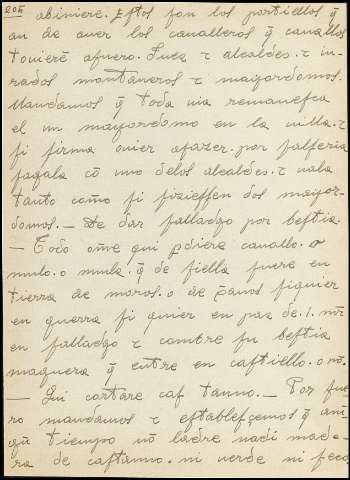 abiniere. Estos son los portiellos q̃
an de auer los caualleros q̃ cauallos
touierē afuero. Juez τ alcaldes. τ iu-
rados montaneros τ mayordomos.
Mandamos q̃ toda uia remanesca
el un mayordomo en la uilla. τ
si firma ouier afazer. por falseria
fagala cō uno delos alcaldes. τ uala
tanto como si fiziessen dos mayor-
domos. — De dar falladgo por bestia.
— Todo om̄e qui pdiere cauallo. o
mulo. o mula. q̃ de siella fuere en
tierra de moros. o de p̃anos siquier
en guerra si quier en paz de .1. mr̄
en falladgo τ cumbre su bestia
maguera q̃ entre en castiello. o nō.
— Qui cortare cas tanno. — Por fue
ro mandamos τ establesçemos q̃ ani-
gũ tiempo nō ladre nadi made-
ra de castanno. ni uerde ni seco